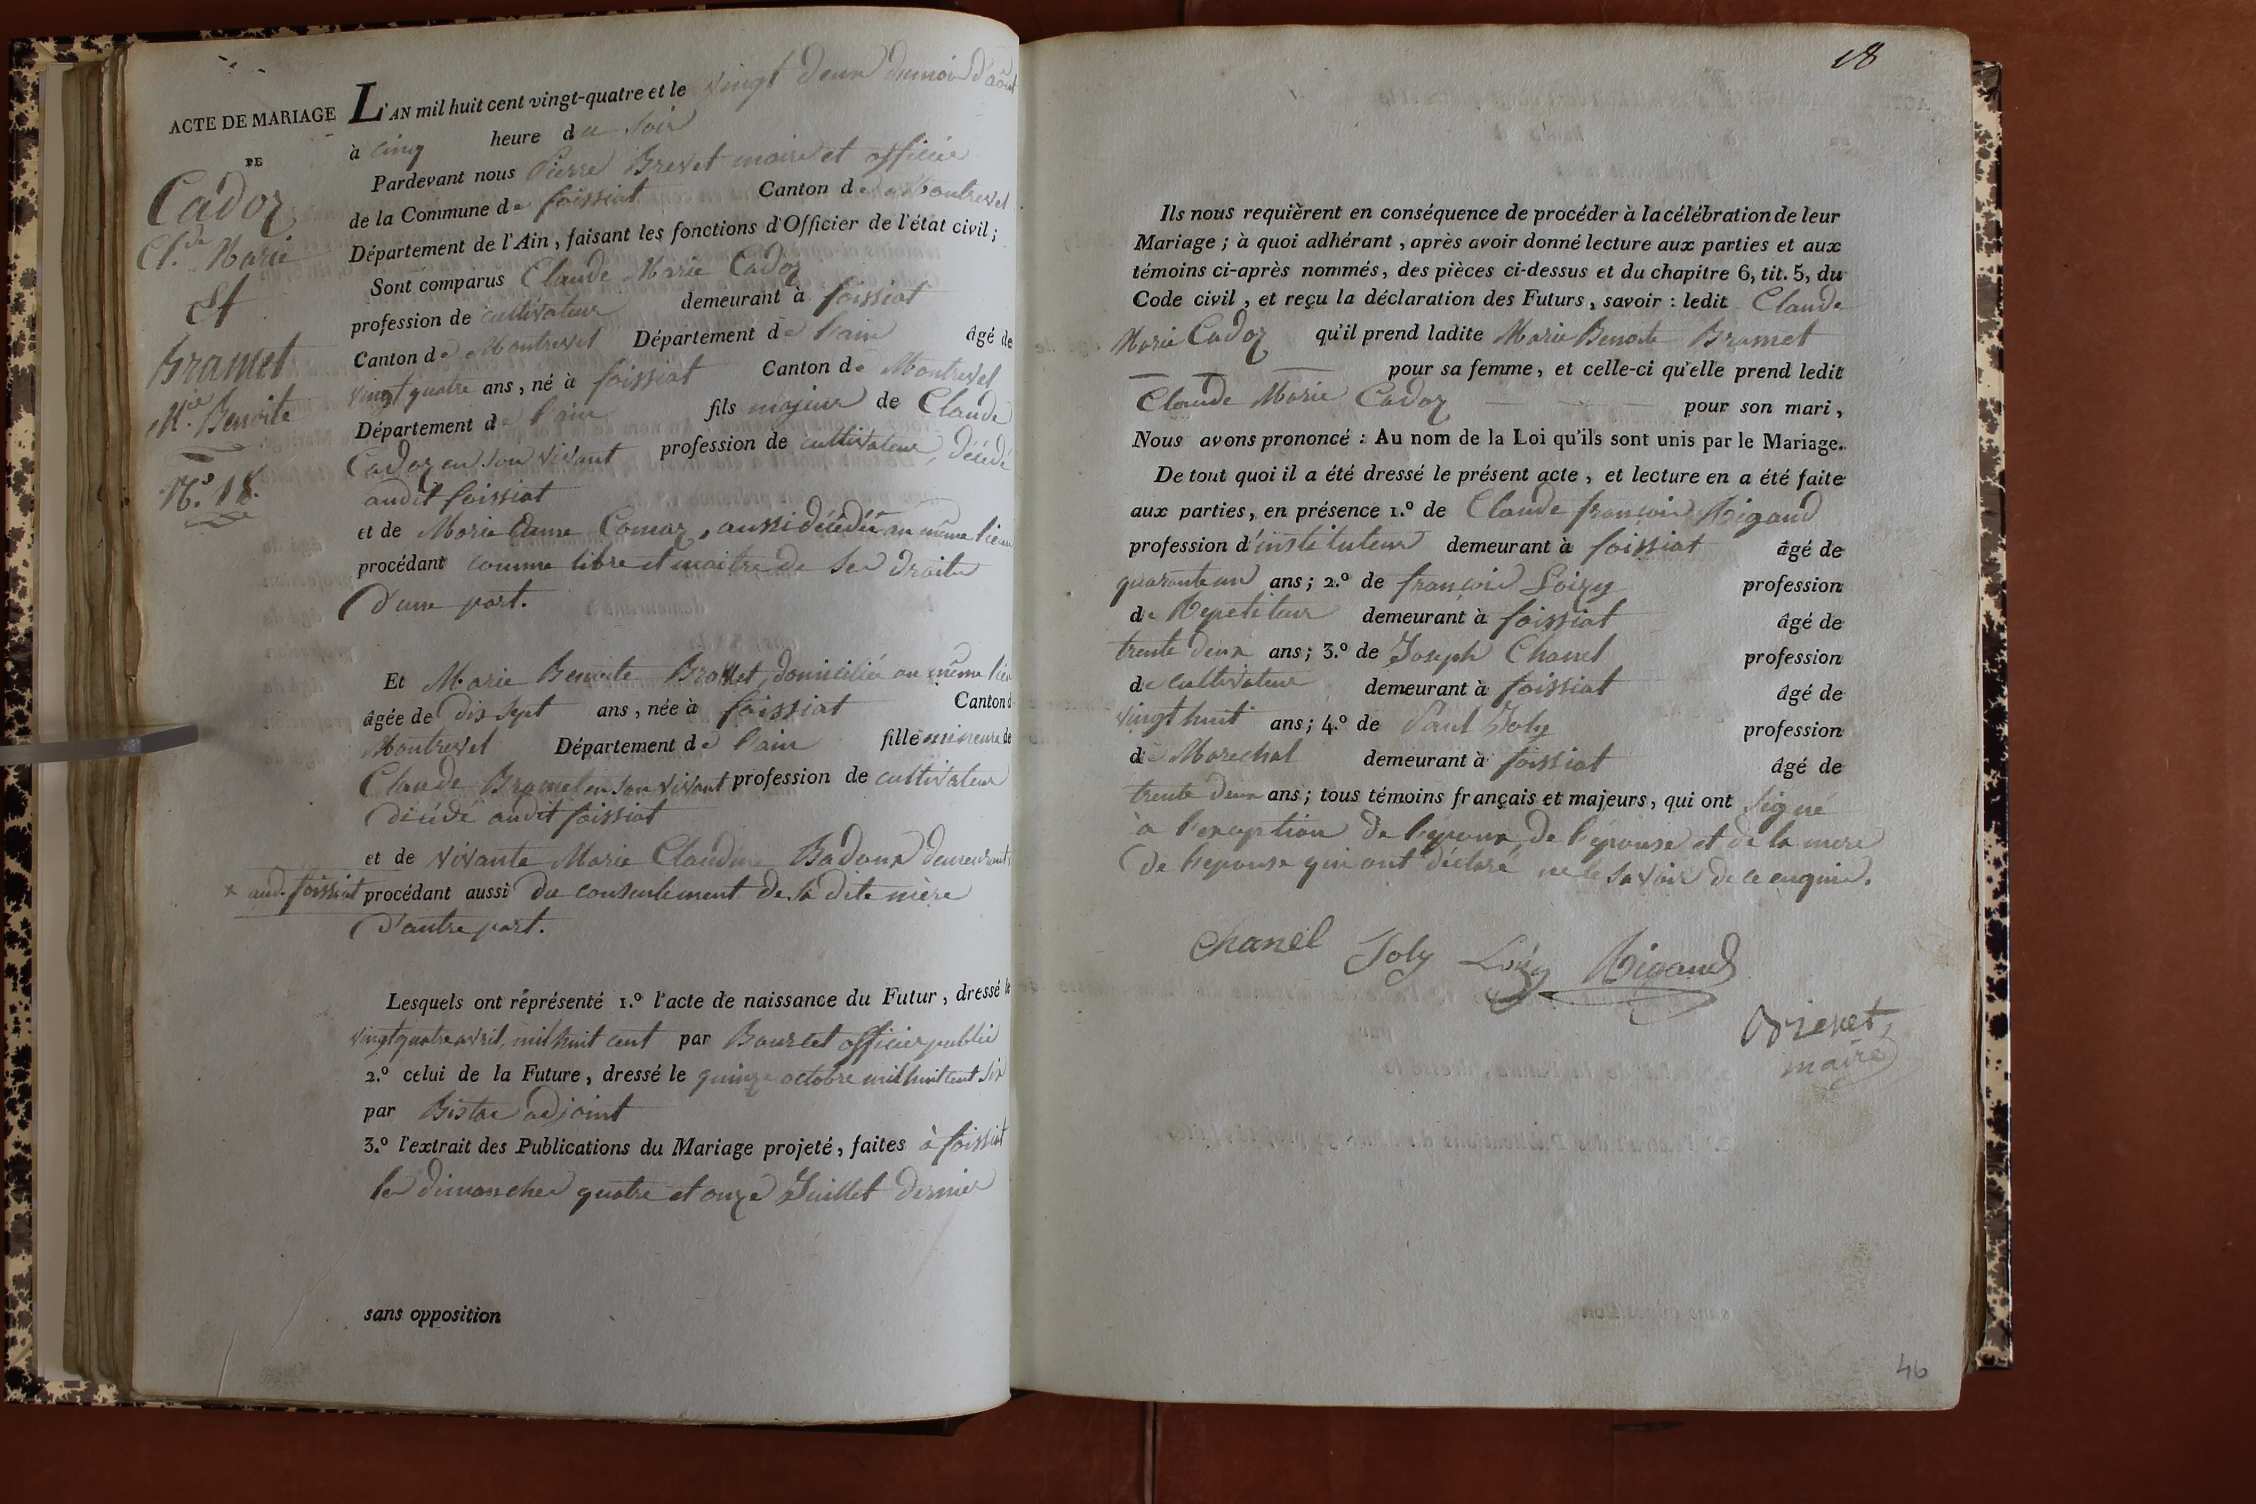 ACTE DE MARIAGE
DE
Cadoz
Cl.de Marie
et
Bramet
M.ie Benoite
N.o 18.
L'AN mil huit cent vingt-quatre et le vingt deux du mois d'août
à cinq heure du soir
Pardevant nous Pierre Brevet maire et officier
de la Commune de foissiat Canton de Montrevel
Département de l'Ain, faisant les fonctions d'Officier de l'état civil;
Sont comparus Claude Marie Cadoz
profession de cultivateur demeurant à foissiat
Canton de Montrevel Département de l'ain âgé de
vingt quatre ans, né à foissiat Canton de Montrevel
Département de l'ain fils majeur de Claude
Cadoz en son vivant profession de cultivateur, décédé
audit foissiat
et de Marie Anne Comaz, aussi décédée au même lieu
procédant comme libre et maitre de ses droits
D'une part.
Et Marie Benoite Bramet, domiciliée au même lieu
âgée de dix sept ans, née à foissiat Canton d
Montrevel Département de l'ain fille mineure de
Claude Bramet en son vivant profession de cultivateur
décédé audit foissiat
et de vivante Marie Claudine Badoux demeurant
x aud. foissiat procédant aussi du consentement de sa dite mère
D'autre part.
Lesquels ont réprésenté 1.º l'acte de naissance du Futur, dressé le
vingt quatre avril, mil huit cent par Bourcet officier public
2.º celui de la Future, dressé le quinze octobre mil huit cent six
par Bistac adjoint
3.º l'extrait des Publications du Mariage projeté, faites à foissiat
les dimanches quatre et onze Juillet dernier
sans opposition
18
Ils nous requièrent en conséquence de procéder à la célébration de leur
Mariage; à quoi adhérant, après avoir donné lecture aux parties et aux
témoins ci-après nommés, des pièces ci-dessus et du chapitre 6, tit. 5, du
Code civil, et reçu la déclaration des Futurs, savoir: ledit Claude
Marie Cadoz qu'il prend ladite Marie Benoite Bramet
pour sa femme, et celle-ci qu'elle prend ledit
Claude Marie Cadoz pour son mari,
Nous avons prononcé: Au nom de la Loi qu'ils sont unis par le Mariage.
De tout quoi il a été dressé le présent acte, et lecture en a été faite
aux parties, en présence 1.º de Claude françois Rigaud
profession d'instituteur demeurant à foissiat âgé de
quarante un ans; 2.º de françois Loizy profession
de Repetiteur demeurant à foissiat âgé de
trente deux ans; 3.º de Joseph Chanel profession
de cultivateur demeurant à foissiat âgé de
vingt huit ans; 4.º de Paul Joly profession
de Marechal demeurant à foissiat âgé de
trente deux ans; tous témoins français et majeurs, qui ont signé
à l'exception de l'epoux, de l'épouse et de la mere
de l'epouse qui ont déclaré ne le savoir de ce enquis.
Chanel Joly Loizy Rigaud
Brevet
maire
46